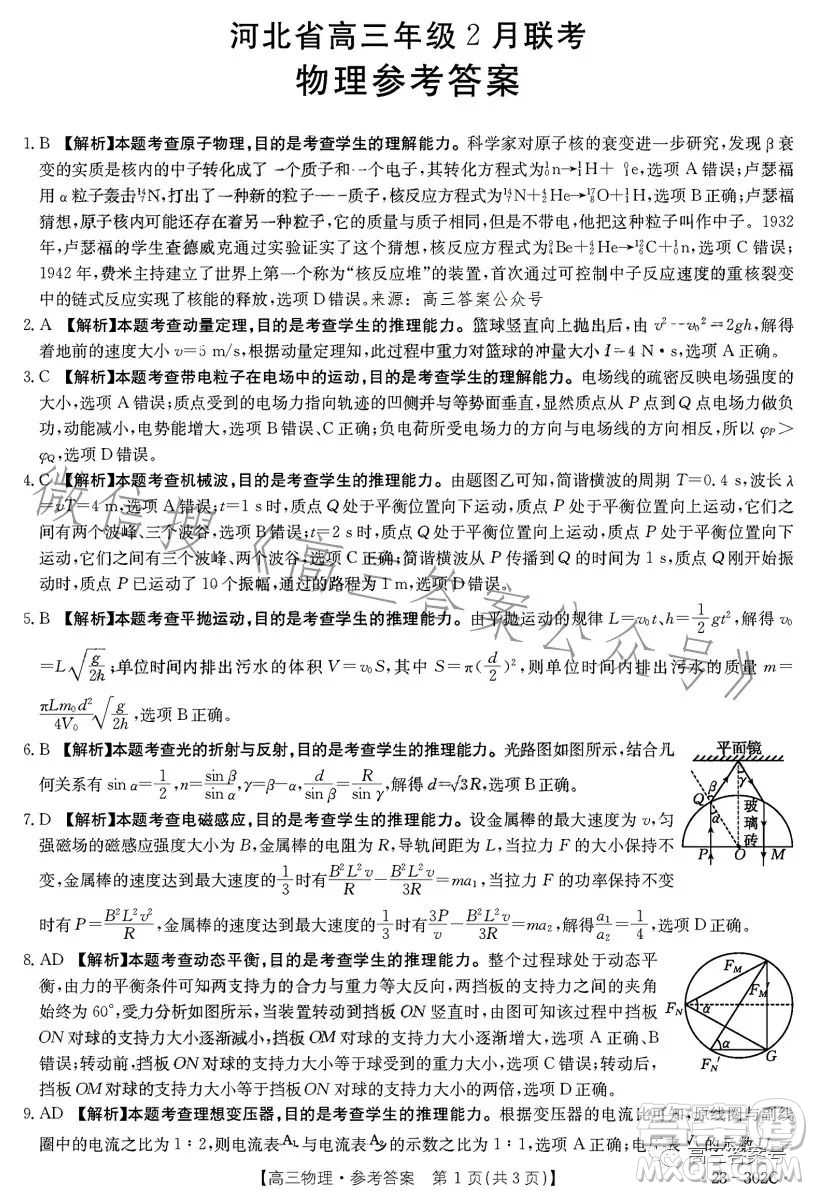 河北省高三年级2月联考
物理参考答案
1. B 【解析】本题考查原子物理,目的是考查学生的理解能力。科学家对原子核的衰变进一步研究,发现β衰
变的实质是核内的中子转化成了一个质子和一个电子,其转化方程式为¹₀n→¹₁H+ ⁰₋₁e,选项A错误;卢瑟福
用α粒子轰击¹⁴₇N,打出了一种新的粒子——质子,核反应方程式为¹⁴₇N+⁴₂He→¹⁷₈O+¹₁H,选项B正确;卢瑟福
猜想,原子核内可能还存在与另一种粒子,它的质量与质子相同,但是不带电,他把这种粒子叫作中子。1932
年,卢瑟福的学生查德威克通过实验证实了这个猜想,核反应方程式为⁹₄Be+⁴₂He→¹²₆C+¹₀n,选项C错误;
1942年,费米主持建立了世界上第一个称为“核反应堆”的装置,首次通过可控制中子反应速度的重核裂变
中的链式反应实现了核能的释放,选项D错误。来源: 高三答案公众号
2. A 【解析】本题考查动量定理,目的是考查学生的推理能力。篮球竖直向上抛出后,由v²−v₀²=2gh,解得
着地前的速度大小v=5 m/s,根据动量定理知,此过程中重力对篮球的冲量大小I=4 N·s,选项A正确。
3. C 【解析】本题考查带电粒子在电场中的运动,目的是考查学生的理解能力。电场线的疏密反映电场强度的
大小,选项A错误;质点受到的电场力指向轨迹的凹侧并与等势面垂直,显然质点从P点到Q点电场力做负
功,动能减小,电势能增大,选项B错误、C正确;负电荷所受电场力的方向与电场线的方向相反,所以φP>
φQ,选项D错误。
4. C 【解析】本题考查机械波,目的是考查学生的推理能力。由题图乙可知,简谐横波的周期T=0.4 s,波长λ
=vT=4 m,选项A错误;t=1 s时,质点Q处于平衡位置向下运动,质点P处于平衡位置向上运动,它们之
间有两个波峰、三个波谷,选项B错误;t=2 s时,质点Q处于平衡位置向上运动,质点P处于平衡位置向下
运动,它们之间有三个波峰、两个波谷,选项C正确;简谐横波从P传播到Q的时间为1 s,质点Q刚开始振
动时,质点P已运动了10个振幅,通过的路程为1 m,选项D错误。
5. B 【解析】本题考查平抛运动,目的是考查学生的推理能力。由平抛运动的规律L=v₀t、h=1/2 gt²,解得v₀
=L√(g/2h);单位时间内排出污水的体积V=v₀S,其中S=π(d/2)²,则单位时间内排出污水的质量m=
πLm₀d²/4V₀ √(g/2h),选项B正确。
6. B 【解析】本题考查光的折射与反射,目的是考查学生的推理能力。光路图如图所示,结合几
何关系有sin α=1/2,n=sin β/sin α,γ=β−α,d/sin β=R/sin γ,解得d=√3R,选项B正确。
平面镜
β
γ
Q
α
玻璃砖
P
O
M
7. D 【解析】本题考查电磁感应,目的是考查学生的推理能力。设金属棒的最大速度为v,匀
强磁场的磁感应强度大小为B,金属棒的电阻为R,导轨间距为L,当拉力F的大小保持不
变,金属棒的速度达到最大速度的1/3时有B²L²v/R−B²L²v/3R=ma₁,当拉力F的功率保持不变
时有P=B²L²v²/R,金属棒的速度达到最大速度的1/3时有3P/v−B²L²v/3R=ma₂,解得a₁/a₂=1/4,选项D正确。
8. AD 【解析】本题考查动态平衡,目的是考查学生的推理能力。整个过程球处于动态平
衡,由力的平衡条件可知两支持力的合力与重力等大反向,两挡板的支持力之间的夹角
始终为60°,受力分析如图所示,当装置转动到挡板ON竖直时,由图可知该过程中挡板
ON对球的支持力大小逐渐减小,挡板OM对球的支持力大小逐渐增大,选项A正确、B
错误;转动前,挡板ON对球的支持力大小等于球受到的重力大小,选项C错误;转动后,
挡板OM对球的支持力大小等于挡板ON对球的支持力大小的两倍,选项D正确。
FM
FM′
FN
α
α
FN′
G
9. AD 【解析】本题考查理想变压器,目的是考查学生的推理能力。根据变压器的电流比可知,原线圈与副线
圈中的电流之比为1∶2,则电流表A₁与电流表A₂的示数之比为1∶1,选项A正确;电压表V₁的示数U
【高三物理·参考答案 第1页(共3页)】
·23−302C·
微信搜《高三答案公众号》
高三答案号